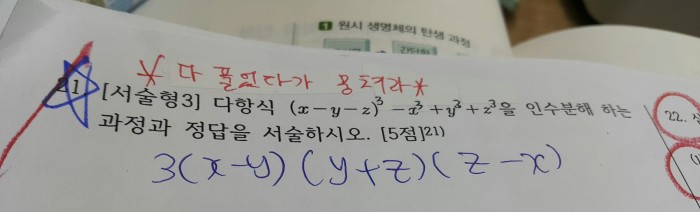 1 원시 생명체의 탄생 과정
* 다 풀었다가 몽청라*
21) [서술형3] 다항식 (x-y-z)³-x³+y³+z³을 인수분해 하는
과정과 정답을 서술하시오. [5점]21)
3(x-y)(y+z)(z-x)
22.